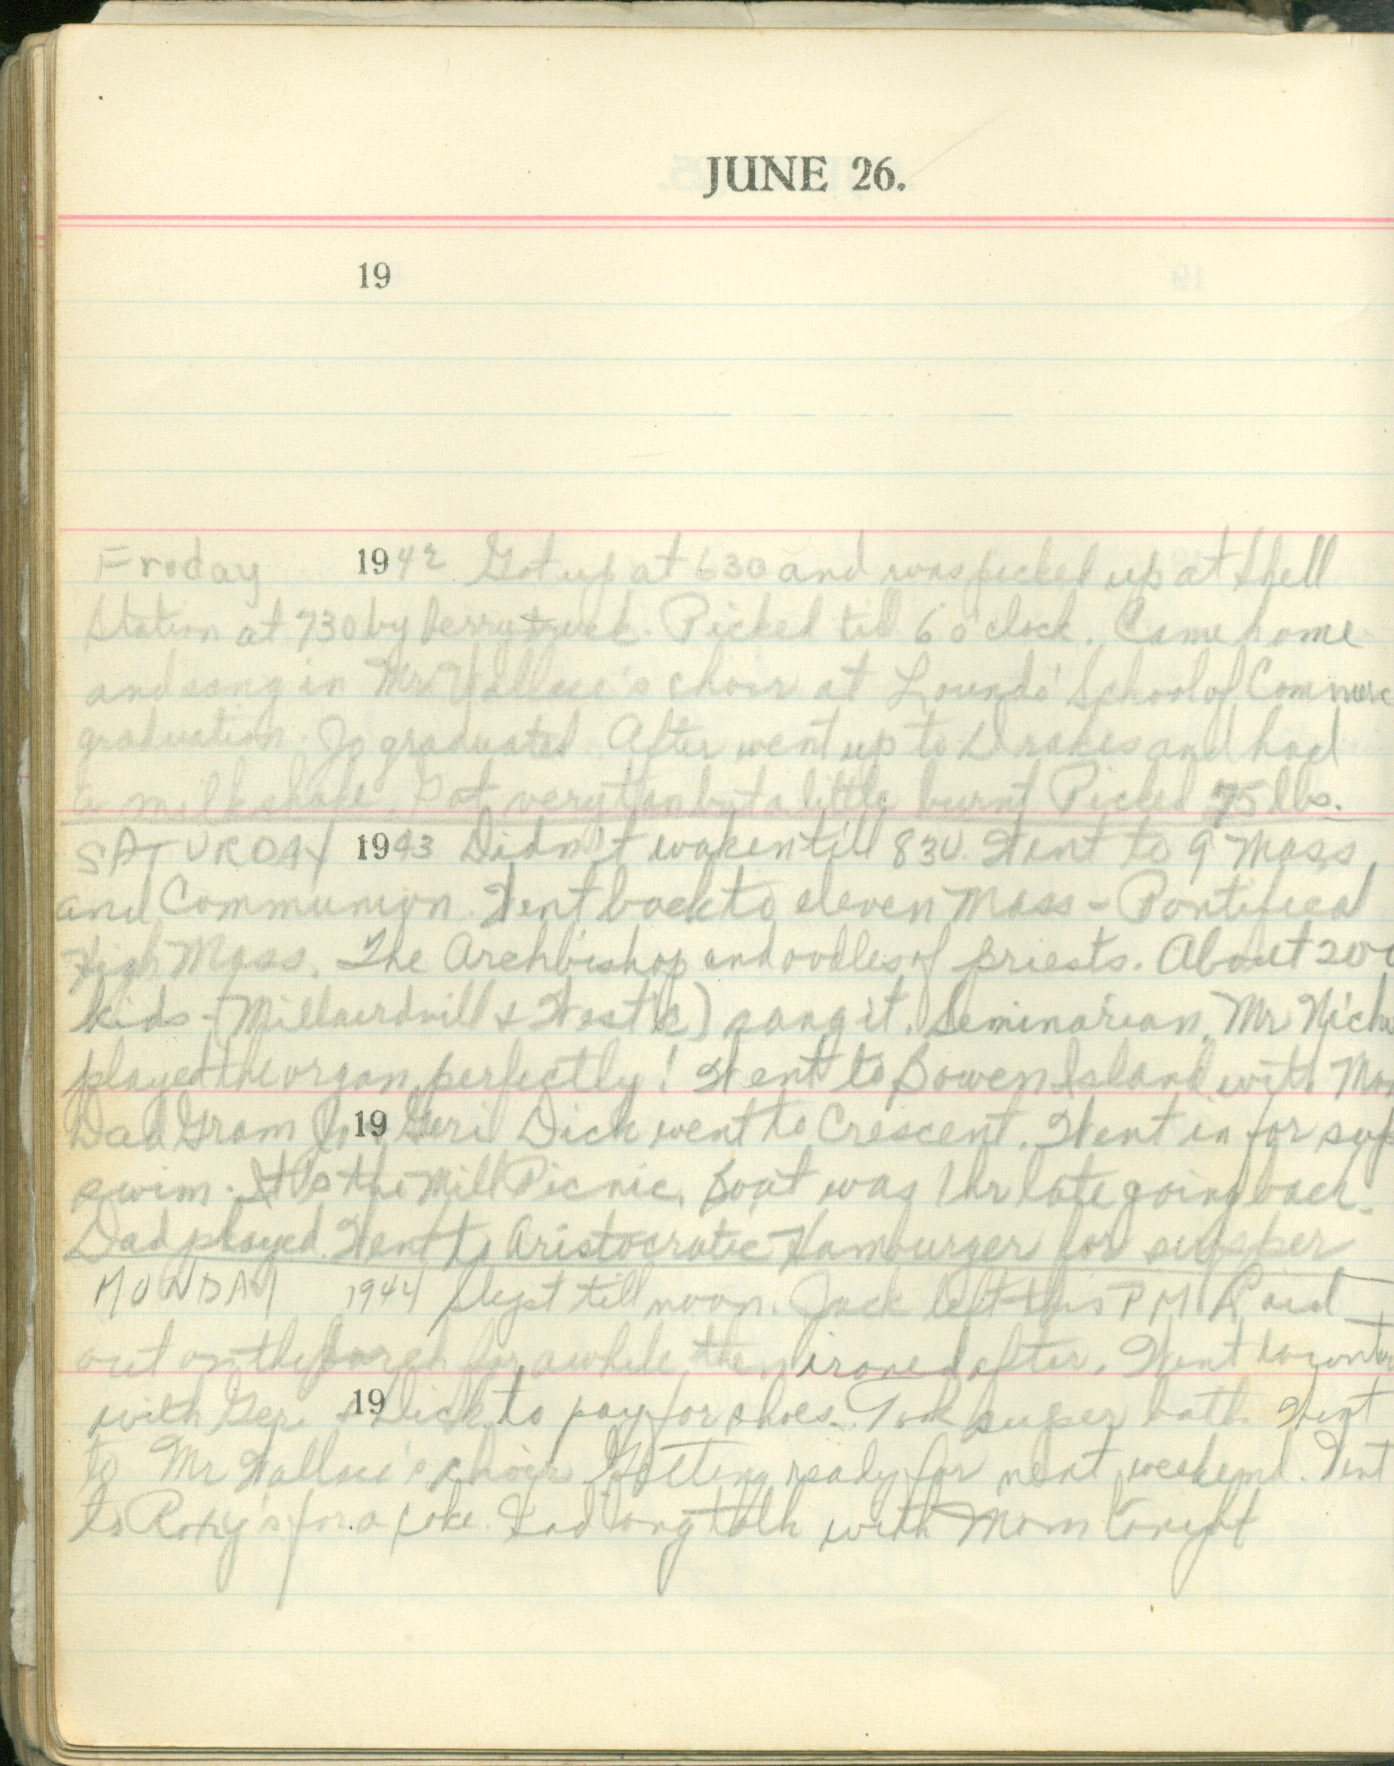 JUNE 26.
19
Friday 1942 Got up at 630 and was picked up at Shell
Station at 730 by berry truck. Picked till 6 o'clock. Came home
and sang in Mr Wallace's choir at Lounds' School of Commerc
graduation. Jo graduated. After went up to Drakes and had
a milkshake. Got very tan but a little burnt Picked 75 lbs.
SATURDAY 1943 Didn't waken till 830. Went to 9 Mass
and Communion. Went back to eleven Mass - Pontifical
High Mass. The Archbishop and oodles of priests. About 200
kids - (Millairdvill & West ) sang it. Seminarian, Mr
played the organ perfectly! Went to Bowen Island with Mom
Dad Gram Jo 19 Geri Dick went to Crescent. Went in for
swim. It's the Mill Picnic. Boat was 1 hr late going back.
Dad played. Went to Aristocratic Hamburger for supper
MONDAY 1944 Slept till noon. Jack left this PM. Laid
out on the porch for a while then ironed after. Went
with Ger. 19 & Dick to pay for shoes. Took super bath. Went
to Mr Wallace's choir. Getting ready for next weekend. Went
to Roxy's for a coke. Had long talk with Mom tonight